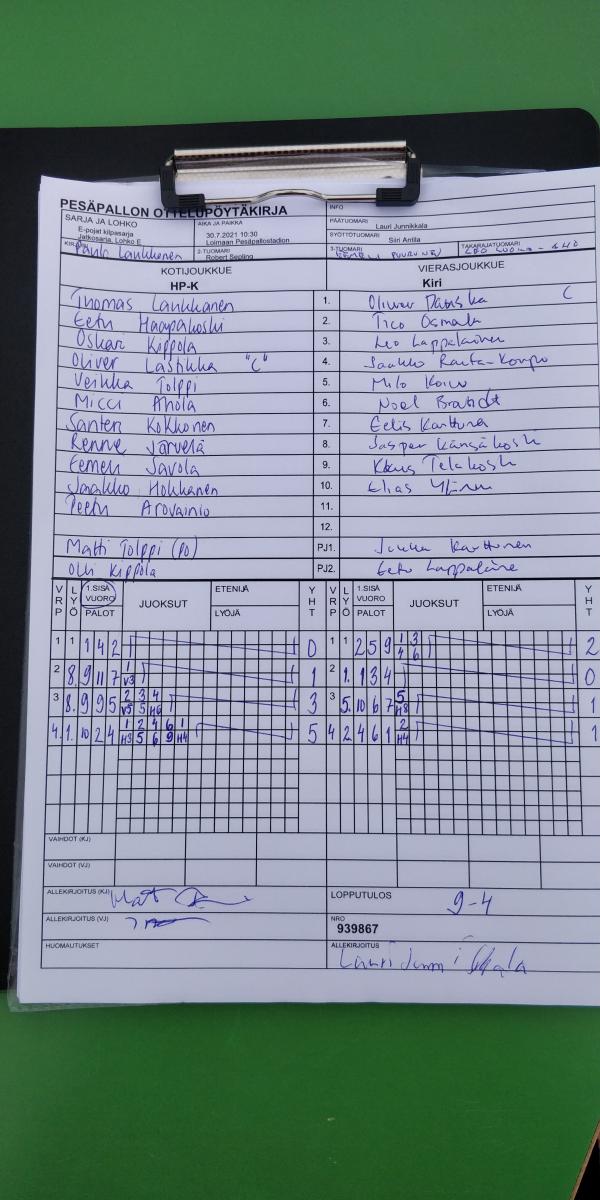 PESÄPALLON OTTELUPÖYTÄKIRJA
INFO
SARJA JA LOHKO
E-pojat kilpasarja
Jatkosarja, Lohko E
AIKA JA PAIKKA
30.7.2021 10:30
Loimaan Pesäpallostadion
PÄÄTUOMARI
Lauri Junnikkala
SYÖTTÖTUOMARI
Siiri Anttila
Paulo Laukkanen
2-TUOMARI
Robert Sepling
3-TUOMARI
TAKARAJATUOMARI
KOTIJOUKKUE VIERASJOUKKUE
HP-K Kiri
Thomas Laukkanen 1. Oliwer C
Eetu Haapakoski 2. Tico Osmala
Oskari Kippola 3. Leo Lappalainen
Oliver Lastikka "C" 4. Jaakko Rauta-Korpo
Veikka Tolppi 5. Milo
Micci Ahola 6. Noel Brandt
Santeri Kokkonen 7. Eelis Karttunen
Renne Järvelä 8. Jasper Känsäkoski
Eemeli Savola 9.
Jaakko Hokkanen 10. Elias
Peetu Arovainio 11.
12.
Matti Tolppi (PO) PJ1. Jukka Karttunen
Olli Kippola PJ2. Eetu
VRP LYÖ 1.SISÄ VUORO PALOT JUOKSUT ETENIJÄ LYÖJÄ YHT VRP LYÖ 1.SISÄ VUORO PALOT JUOKSUT ETENIJÄ LYÖJÄ YHT
1 1 1 4 2 0 1 1 2 5 9 1 3 2
4 6
2 8. 9 11 7 1 1 2 1. 1 3 4 0
V3
3 8. 9 9 5 2 3 4 3 3 5. 10 6 7 5 1
V5 5 H6 H8
4. 1. 10 2 4 1 2 4 6 1 5 4 2 4 6 1 2 1
H3 5 6 9 H4 H4
VAIHDOT (KJ)
VAIHDOT (VJ)
ALLEKIRJOITUS (KJ) LOPPUTULOS 9-4
ALLEKIRJOITUS (VJ) NRO
939867
HUOMAUTUKSET ALLEKIRJOITUS
Lauri Junnikkala